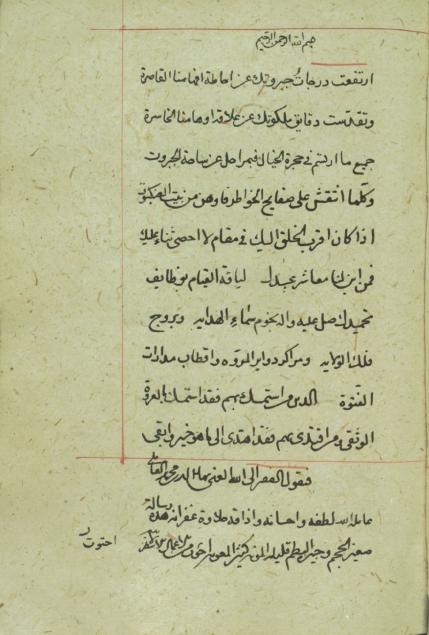 بسم الله الرحمن الرحيم
ارتفعت درجات جبروتك عن احاطة افهامنا القاصرة
وتقدست دقايق ملكوتك عن علاقة اوهامنا الخاسرة
جميع ما ارتسم في حجرة الخيال فبمراحل عن ساحة الجبروت
وكلما انتقش على صفايح الخواطر فاوهن من بيت العنكبوت
اذا كان اقرب الخلق اليك في مقام لا احصي ثناء عليك
فمن اين لنا معاشر عبيدك لياقة القيام بوظايف
تحميدك صل عليه واله نجوم سماء الهدايه وبروج
فلك الولايه ومراكز دواير المروه واقطاب مدارات
الفتوة الذين من استمسك بهم فقد استمسك بالعروة
الوثقى ومن اقتدى بهم فقد اهتدى الى ما هو خير وابقى
فيقول الفقير الى الله الغني بهاء الدين محمد العاملي
عامله الله بلطفه واحسانه واذاقه حلاوة غفرانه هذه رسالة
صغيرة الحجم وجيزة النظم قليلة المونه كثيرة المعونه
احتوت